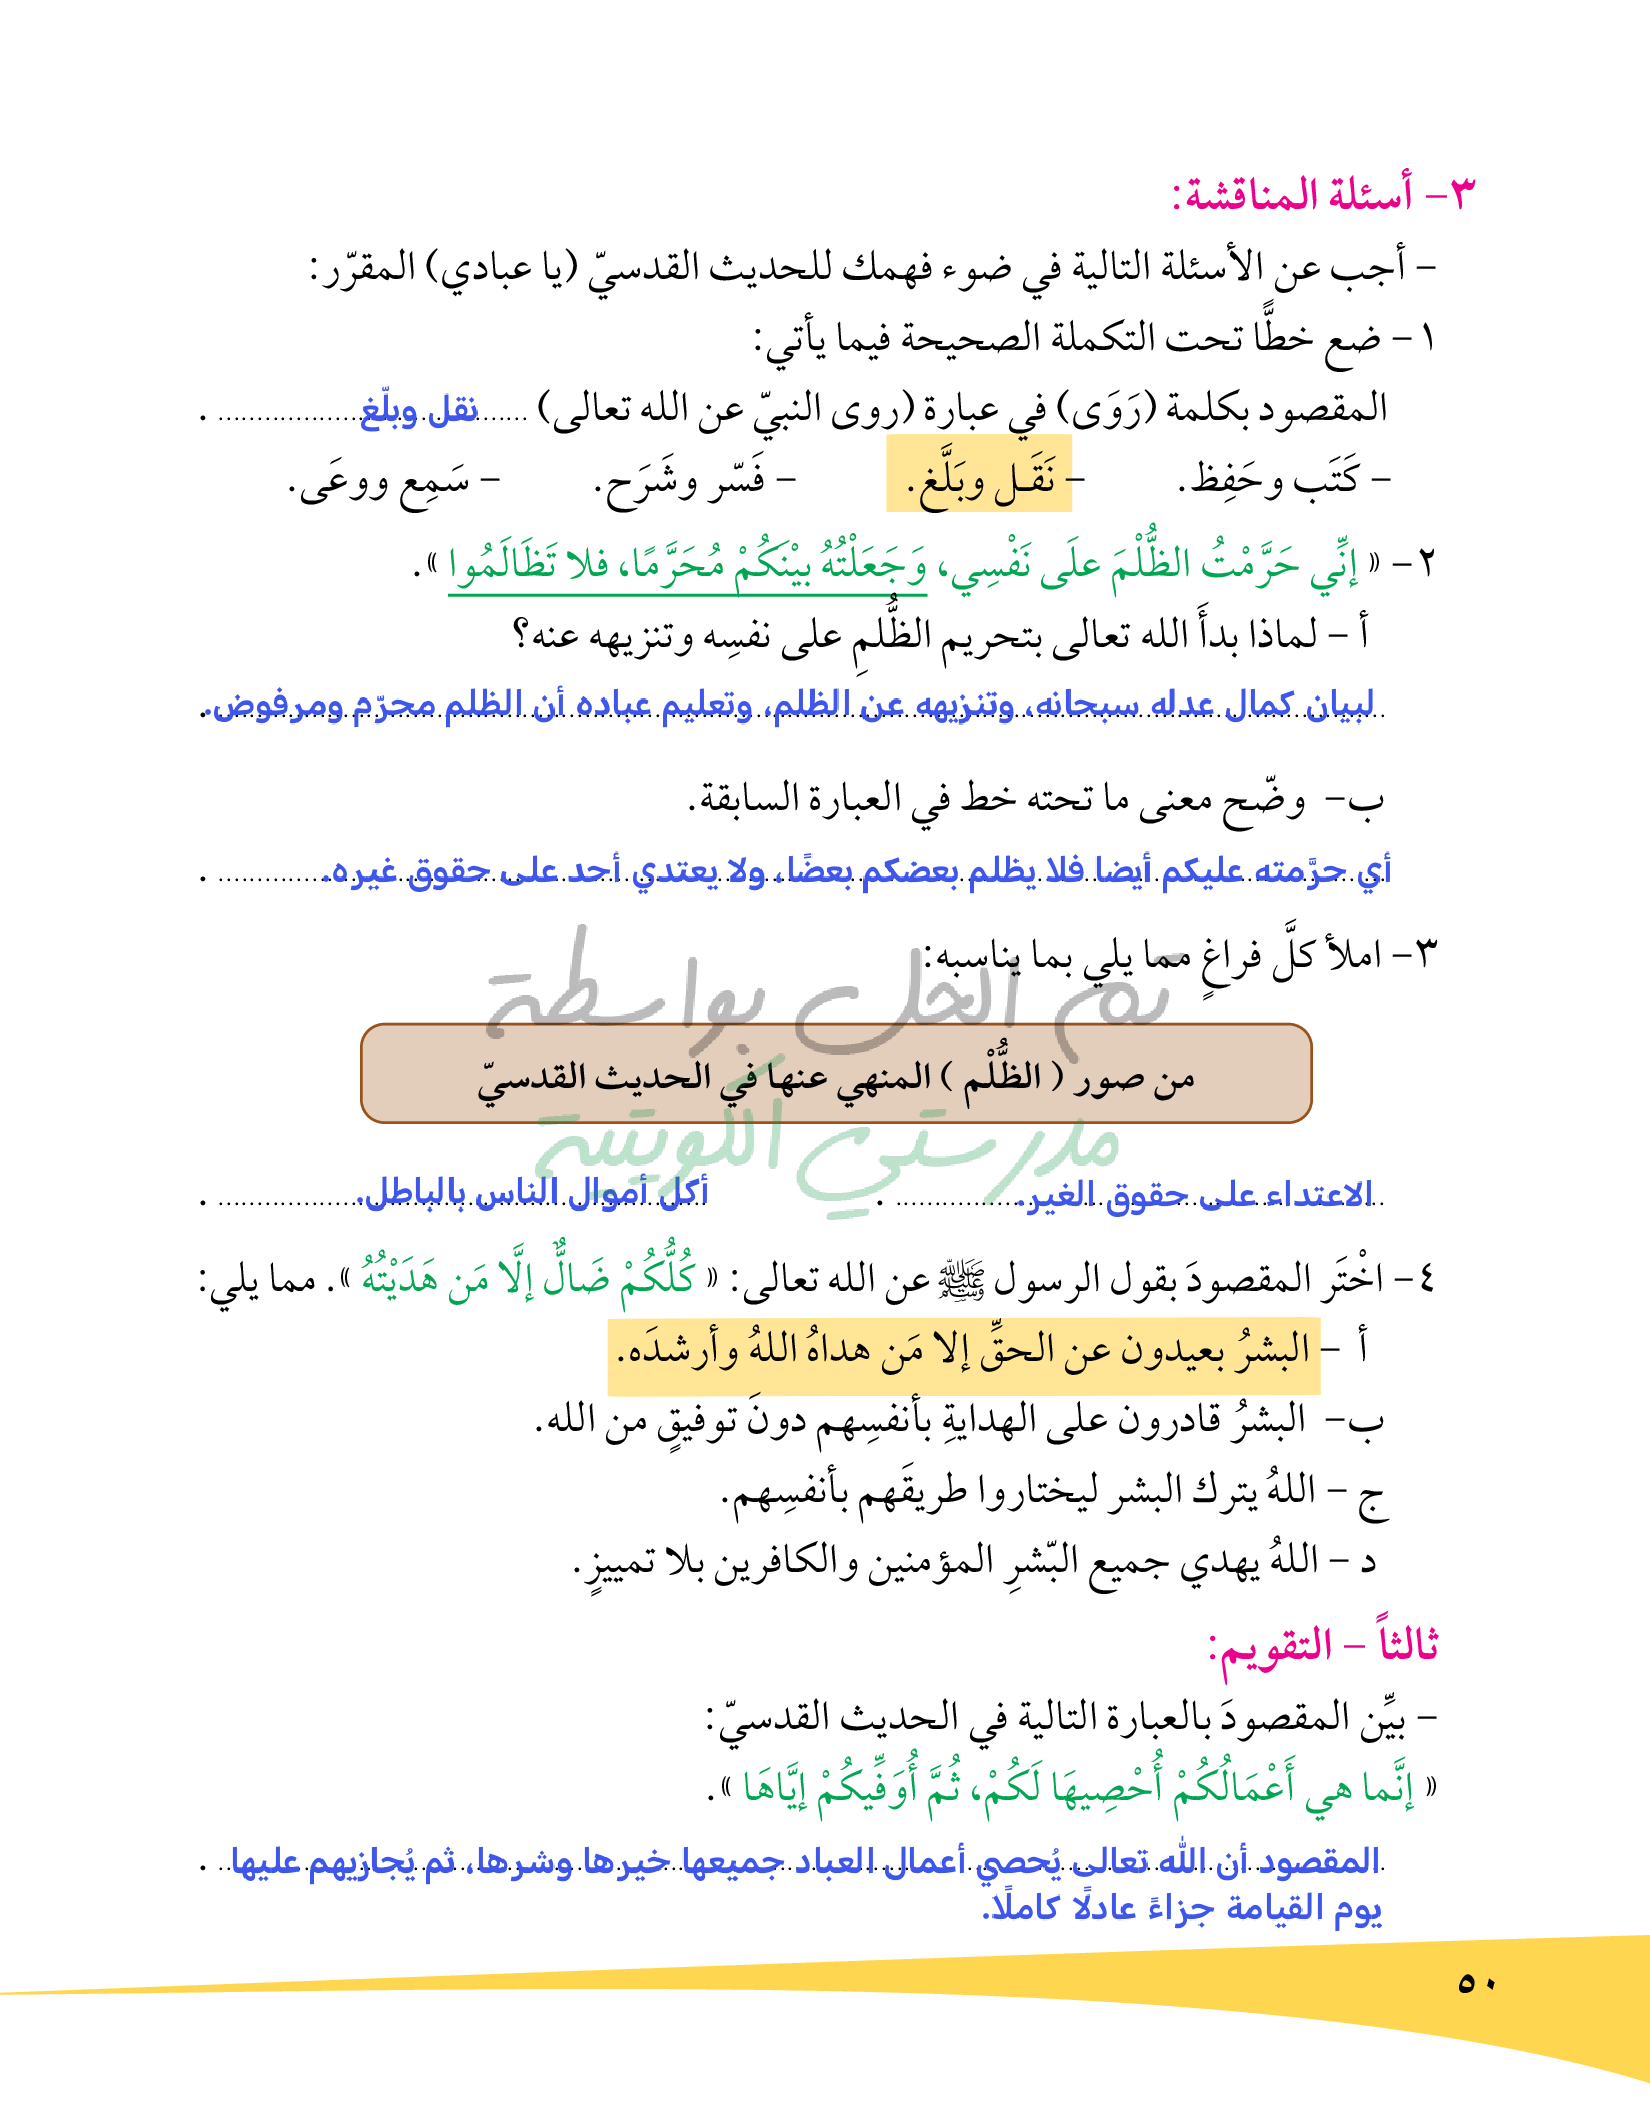 ٣– أسئلة المناقشة:
– أجب عن الأسئلة التالية في ضوء فهمك للحديث القدسيّ (يا عبادي) المقرّر:
١– ضع خطًّا تحت التكملة الصحيحة فيما يأتي:
المقصود بكلمة (رَوَى) في عبارة (روى النبيّ عن الله تعالى) نقل وبلّغ .
– كَتَب وحَفِظ. – نَقَـل وبَلَّغ. – فَسّر وشَرَح. – سَمِع ووعَى.
٢– « إنِّي حَرَّمْتُ الظُّلْمَ علَى نَفْسِي، وَجَعَلْتُهُ بيْنَكُمْ مُحَرَّمًا، فلا تَظَالَمُوا ».
أ – لماذا بدأَ الله تعالى بتحريم الظُّلمِ على نفسِه وتنزيهه عنه؟
لبيان كمال عدله سبحانه، وتنزيهه عن الظلم، وتعليم عباده أن الظلم محرّم ومرفوض.
ب– وضّح معنى ما تحته خط في العبارة السابقة.
أي حرَّمته عليكم أيضا فلا يظلم بعضكم بعضًا، ولا يعتدي أحد على حقوق غيره. .
٣– املأ كلَّ فراغٍ مما يلي بما يناسبه:
تم الحل بواسطة
من صور ( الظُّلْم ) المنهي عنها في الحديث القدسيّ
مدرستي الكويتية
الاعتداء على حقوق الغير. . أكل أموال الناس بالباطل. .
٤– اخْتَر المقصودَ بقول الرسول ﷺ عن الله تعالى: « كُلُّكُمْ ضَالٌّ إلَّا مَن هَدَيْتُهُ ». مما يلي:
أ – البشرُ بعيدون عن الحقِّ إلا مَن هداهُ اللهُ وأرشدَه.
ب– البشرُ قادرون على الهدايةِ بأنفسِهم دونَ توفيقٍ من الله.
ج – اللهُ يترك البشر ليختاروا طريقَهم بأنفسِهم.
د – اللهُ يهدي جميع البّشرِ المؤمنين والكافرين بلا تمييزٍ.
ثالثاً – التقويم:
– بيِّن المقصودَ بالعبارة التالية في الحديث القدسيّ:
« إنَّما هي أَعْمَالُكُمْ أُحْصِيهَا لَكُمْ، ثُمَّ أُوَفِّيكُمْ إيَّاهَا ».
المقصود أن الله تعالى يُحصي أعمال العباد جميعها خيرها وشرها، ثم يُجازيهم عليها .
يوم القيامة جزاءً عادلًا كاملًا.
٥٠